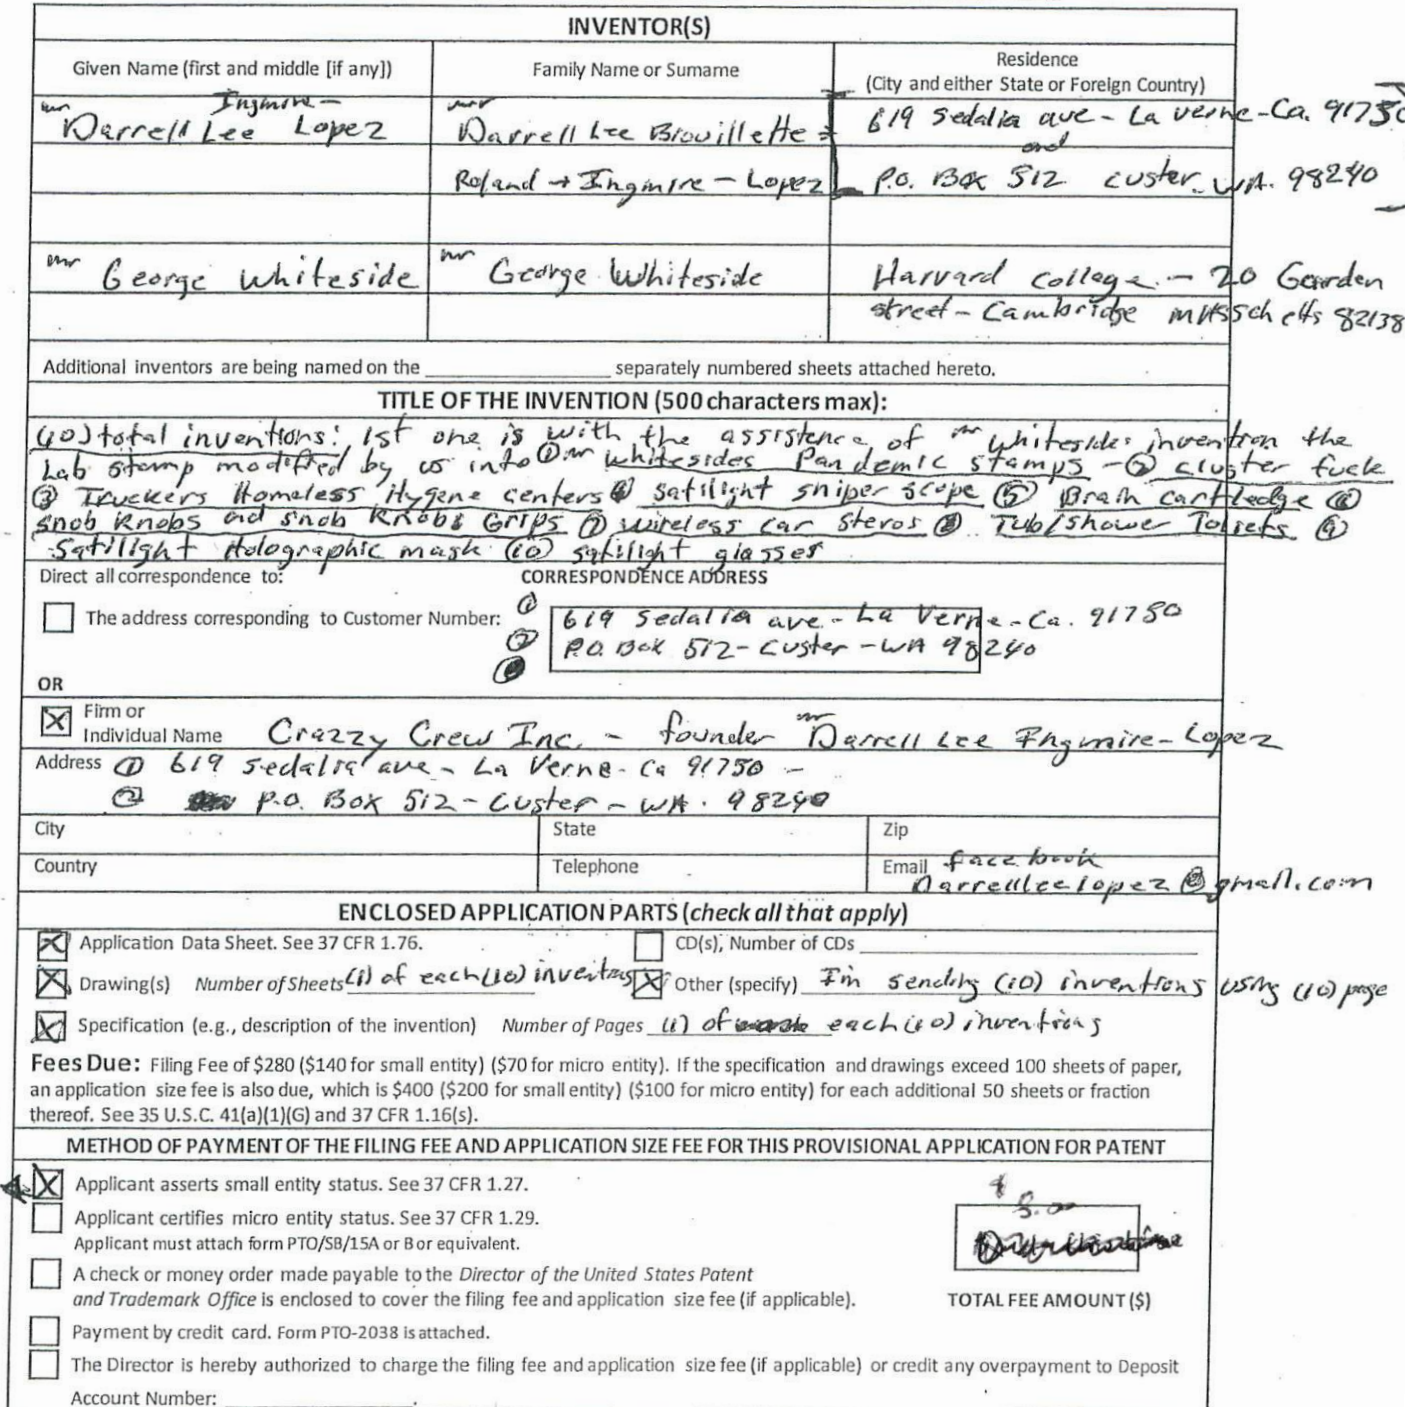 INVENTOR(S)
Given Name (first and middle [if any]) Family Name or Surname Residence (City and either State or Foreign Country)
mr Darrell Lee Ingmire- Lopez mr Darrell Lee Brouillette 619 Sedalia ave - La verne-Ca. 91750
and
Roland → Ingmire - Lopez P.O. Box 512 Custer WA. 98240
mr George Whiteside mr George Whiteside Harvard College - 20 Garden
street - Cambridge MASschetts 82138
Additional inventors are being named on the separately numbered sheets attached hereto.
TITLE OF THE INVENTION (500 characters max):
(10) total inventions: 1st one is with the assistence of mr whitesides invention the
Lab stamp modified by us into ① mr whitesides Pandemic stamps - ② cluster fuck
③ Truckers Homeless Hygene centers ④ satilight sniper scope ⑤ Brain cartledge ⑥
snob knobs and snob knobs Grips ⑦ wireless car steros ⑧ Tub/shower Toliets ⑨
Satilight Holographic mask (10) satilight glasses
Direct all correspondence to: CORRESPONDENCE ADDRESS
The address corresponding to Customer Number: ① 619 Sedalia ave - La Verne - Ca. 91750
② P.O. Box 512 - Custer - WA 98240
OR
Firm or Individual Name Crazzy Crew Inc. - founder mr Darrell Lee Ingmire-Lopez
Address ① 619 sedalia ave - La Verne - Ca 91750 -
② P.O. Box 512 - Custer - WA. 98240
City State Zip
Country Telephone Email face book
Darrellleelopez@gmail.com
ENCLOSED APPLICATION PARTS (check all that apply)
Application Data Sheet. See 37 CFR 1.76. CD(s), Number of CDs
Drawing(s) Number of Sheets (1) of each (10) inventions Other (specify) I'm sending (10) inventions using (10) page
Specification (e.g., description of the invention) Number of Pages (1) of each (10) inventions
Fees Due: Filing Fee of $280 ($140 for small entity) ($70 for micro entity). If the specification and drawings exceed 100 sheets of paper,
an application size fee is also due, which is $400 ($200 for small entity) ($100 for micro entity) for each additional 50 sheets or fraction
thereof. See 35 U.S.C. 41(a)(1)(G) and 37 CFR 1.16(s).
METHOD OF PAYMENT OF THE FILING FEE AND APPLICATION SIZE FEE FOR THIS PROVISIONAL APPLICATION FOR PATENT
Applicant asserts small entity status. See 37 CFR 1.27.
Applicant certifies micro entity status. See 37 CFR 1.29.
Applicant must attach form PTO/SB/15A or B or equivalent.
A check or money order made payable to the Director of the United States Patent
and Trademark Office is enclosed to cover the filing fee and application size fee (if applicable). TOTAL FEE AMOUNT ($)
Payment by credit card. Form PTO-2038 is attached.
The Director is hereby authorized to charge the filing fee and application size fee (if applicable) or credit any overpayment to Deposit
Account Number: